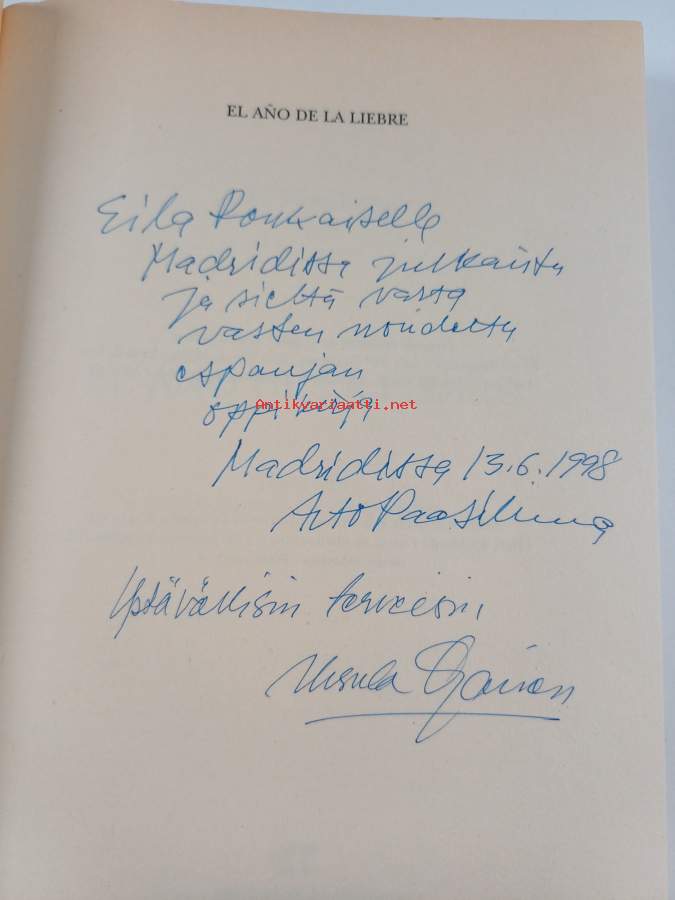 EL AÑO DE LA LIEBRE
Eila
Madridissa julkaistu
ja sieltä varta
vasten noudettu
espanjan
oppikirja
Antikvariaatti.net
Madridissa 13.6.1998
Arto Paasilinna
Ystävällisin terveisin,
Ursula Ojanen